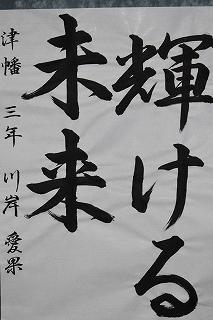 輝ける
未来
津幡 三年 川岸 愛果